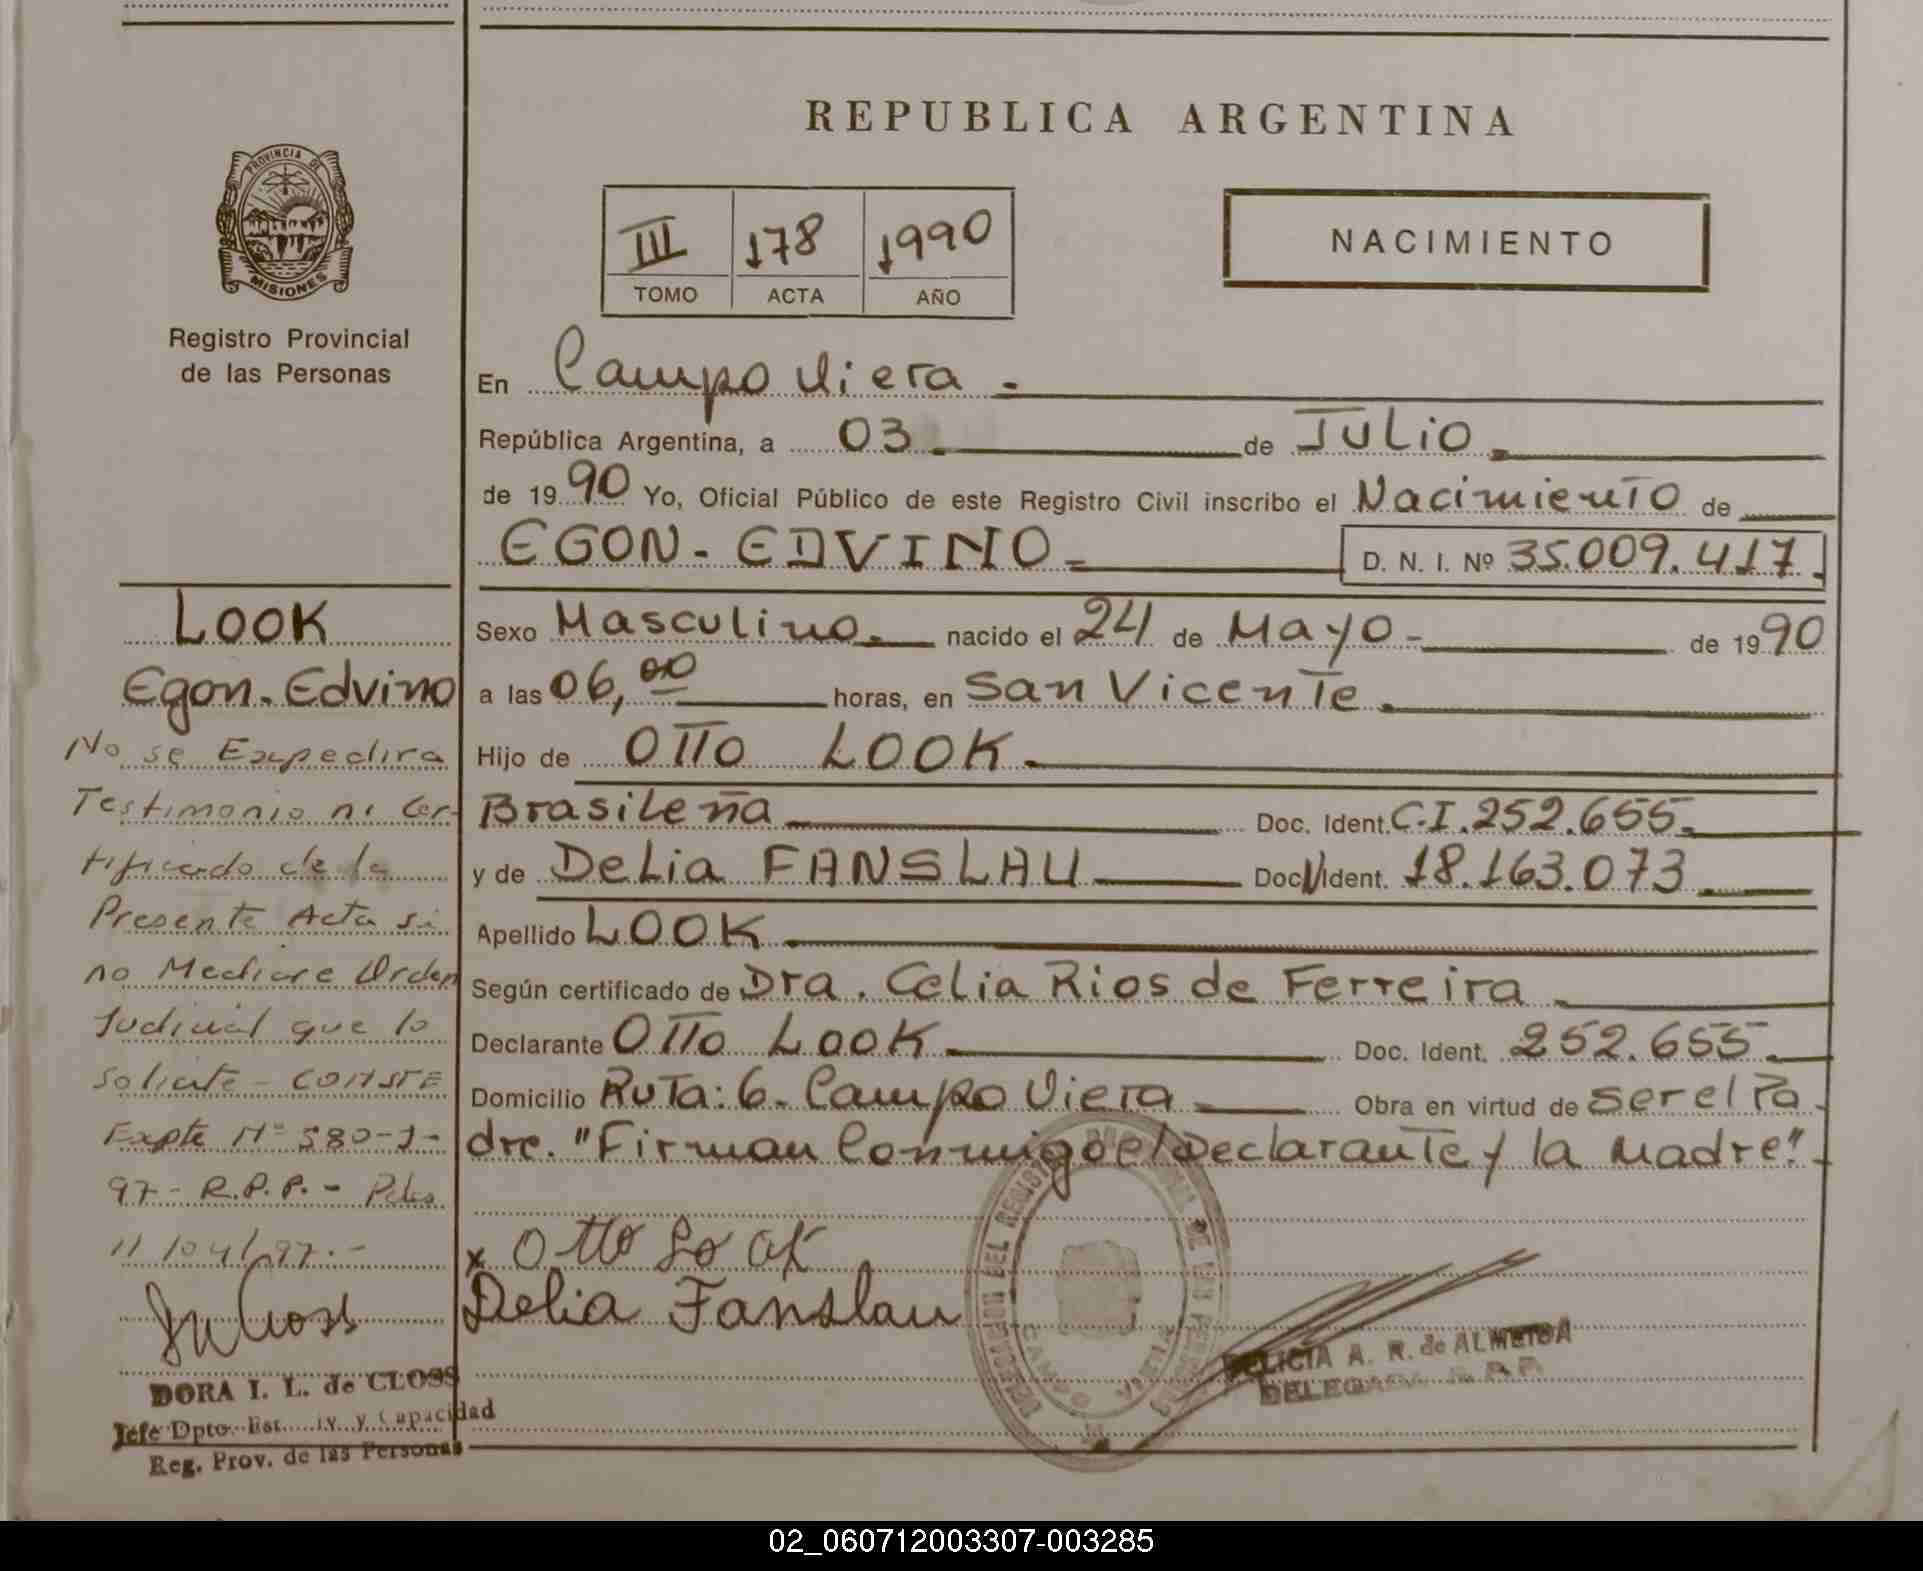 REPUBLICA ARGENTINA
PROVINCIA DE
MISIONES
Registro Provincial
de las Personas
III 178 1990
TOMO ACTA AÑO
NACIMIENTO
En Campo Viera -
República Argentina, a 03 de Julio
de 1990 Yo, Oficial Público de este Registro Civil inscribo el Nacimiento de
EGON - EDVINO - D. N. I. Nº 35.009.417
Sexo Masculino. nacido el 24 de Mayo - de 1990
a las 06,00 horas, en San Vicente
Hijo de Otto LOOK
Brasileña Doc. Ident. C.I. 252.655
y de Delia FANSLAU Doc. Ident. 18.163.073
Apellido LOOK
Según certificado de Dra. Celia Rios de Ferreira
Declarante Otto Look Doc. Ident. 252.655
Domicilio Ruta: 6 - Campo Viera Obra en virtud de ser el Pa-
dre. "Firman Conmigo el Declarante y la Madre".
x Otto Look
Delia Fanslau
FELICIA A. R. de ALMEIDA
DELEGADA R. P. P.
LOOK
Egon. Edvino
No se Expedira
Testimonio ni Cer-
tificado de la
Presente Acta si
no Mediare Orden
Judicial que lo
Solicite - CONSTE
Expte Nº 580-J-
97 - R.P.P. - Pdas
11/04/97.-
DORA I. L. de CLOSS
Jefe Dpto. Est. Civ. y Capacidad
Reg. Prov. de las Personas
02_060712003307-003285